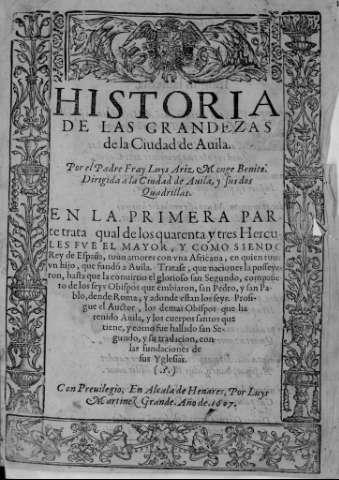 HISTORIA
DE LAS GRANDEZAS
de la Ciudad de Auila.
Por el Padre Fray Luys Ariz, Monge Benito.
Dirigida a la Ciudad de Auila, y sus dos
Quadrillas.
EN LA PRIMERA PAR
te trata qual de los quarenta y tres Hercu
LES FVE EL MAYOR, Y COMO SIENDO
Rey de España, tuuo amores con vna Africana, en quien tuuo
vn hijo, que fundó a Auila. Tratase, que naciones la posseye
ron, hasta que la conuirtio el glorioso san Segundo, compañe
ro de los seys Obispos que embiaron, san Pedro, y san Pa
blo, dende Roma, y adonde estan los seys. Prosi
gue el Auctor, los demas Obispos que ha
tenido Auila, y los cuerpos santos que
tiene, y como fue hallado san Se
gundo, y su traslacion, con
las fundaciones de
sus Yglesias.
Con Preuilegio, En Alcala de Henares, Por Luys
Martinez Grande. Año de. 1607.